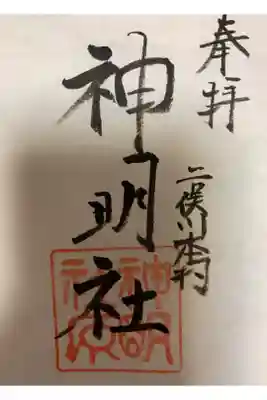 奉拝
二俣川本村
神明社